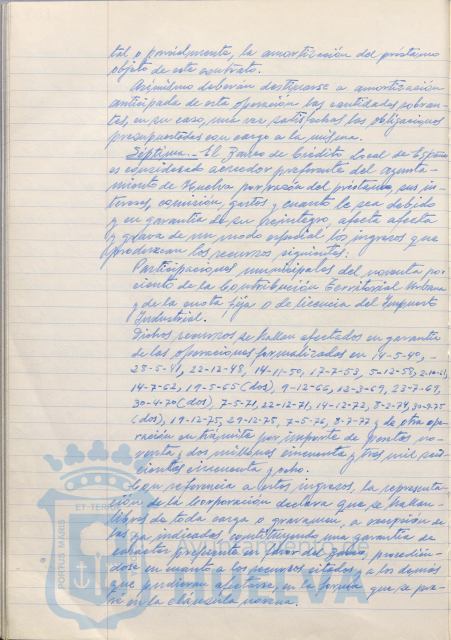 tal o parcialmente, la amortización del préstamo
objeto de este contrato.
Asimismo deberán destinarse a amortización
anticipada de esta operación las cantidades sobran-
tes, en su caso, una vez satisfechas las obligaciones
presupuestadas con cargo a la misma.
Séptima.- El Banco de Crédito Local de España
es considerado acreedor preferente del Ayunta-
miento de Huelva por razón del préstamo, sus in-
tereses, comisión, gastos y cuanto le sea debido
y en garantía de su reintegro, afecta afecta
y grava de un modo especial los ingresos que
produzcan los recursos siguientes:
Participaciones municipales del noventa por
ciento de la Contribución Territorial Urbana
y de la cuota fija o de licencia del Impuesto
Industrial.
Dichos recursos se hallan afectados en garantía
de las operaciones formalizadas en 14-5-40,-
28-5-41, 22-12-48, 14-11-50, 17-7-53, 5-12-58, 2-10-61,
14-7-62, 19-5-65 (dos), 9-12-66, 12-3-69, 23-7-69,
30-4-70 (dos), 7-5-71, 22-12-71, 14-12-72, 8-2-74, 30-9-75
(dos), 19-12-75, 29-12-75, 7-5-76, 8-7-77 y de otra ope-
ración en trámite por importe de ptas no-
venta y dos millones cincuenta y tres mil seis-
cientas cincuenta y ocho.
Con referencia a estos ingresos, la representa-
ción de la Corporación declara que se hallan
libres de toda carga o gravamen, a excepción de
las ya indicadas, constituyendo una garantía de
carácter preferente en favor del Banco, procedién-
dose en cuanto a los recursos citados y a los demás
que pudieran afectarse, en la forma que se pre-
vé en la cláusula novena.
PORTUS MARIS
ET TERRAE
AYUNTAMIENTO DE
HUELVA